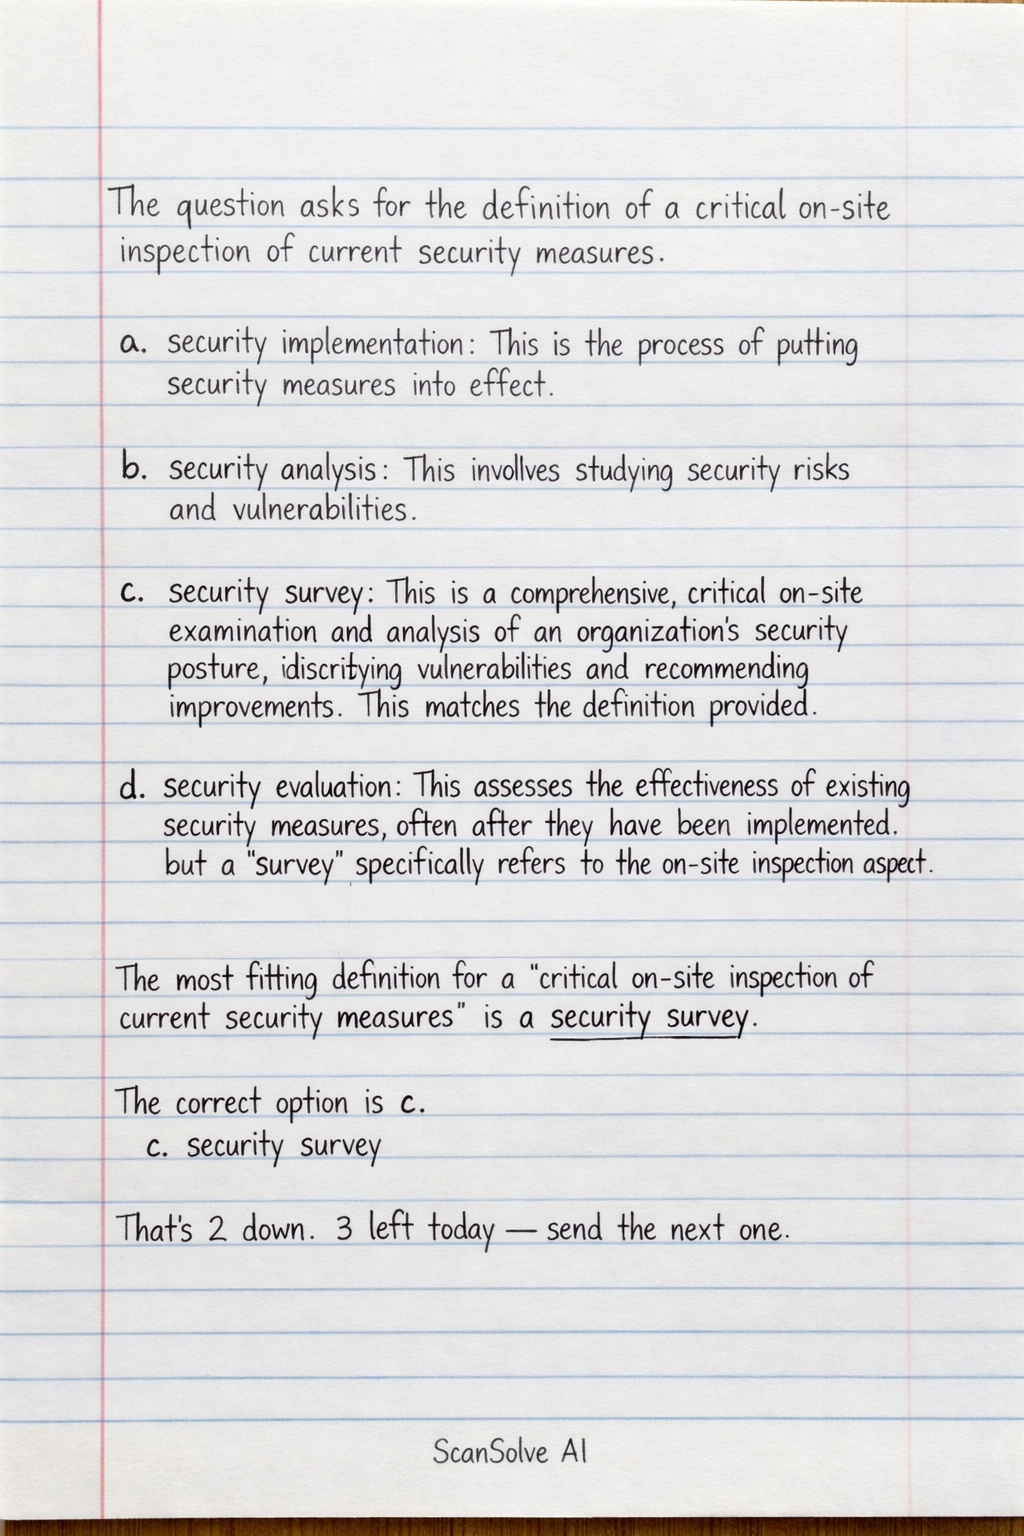 The question asks for the definition of a critical on-site
inspection of current security measures.
a. security implementation: This is the process of putting
security measures into effect.
b. security analysis: This invollves studying security risks
and vulnerabilities.
c. security survey: This is a comprehensive, critical on-site
examination and analysis of an organization's security
posture, idiscritying vulnerabilities and recommending
improvements. This matches the definition provided.
d. security evaluation: This assesses the effectiveness of existing
security measures, often after they have been implemented.
but a "survey" specifically refers to the on-site inspection aspect.
The most fitting definition for a "critical on-site inspection of
current security measures" is a security survey.
The correct option is c.
c. security survey
That's 2 down. 3 left today — send the next one.
ScanSolve AI